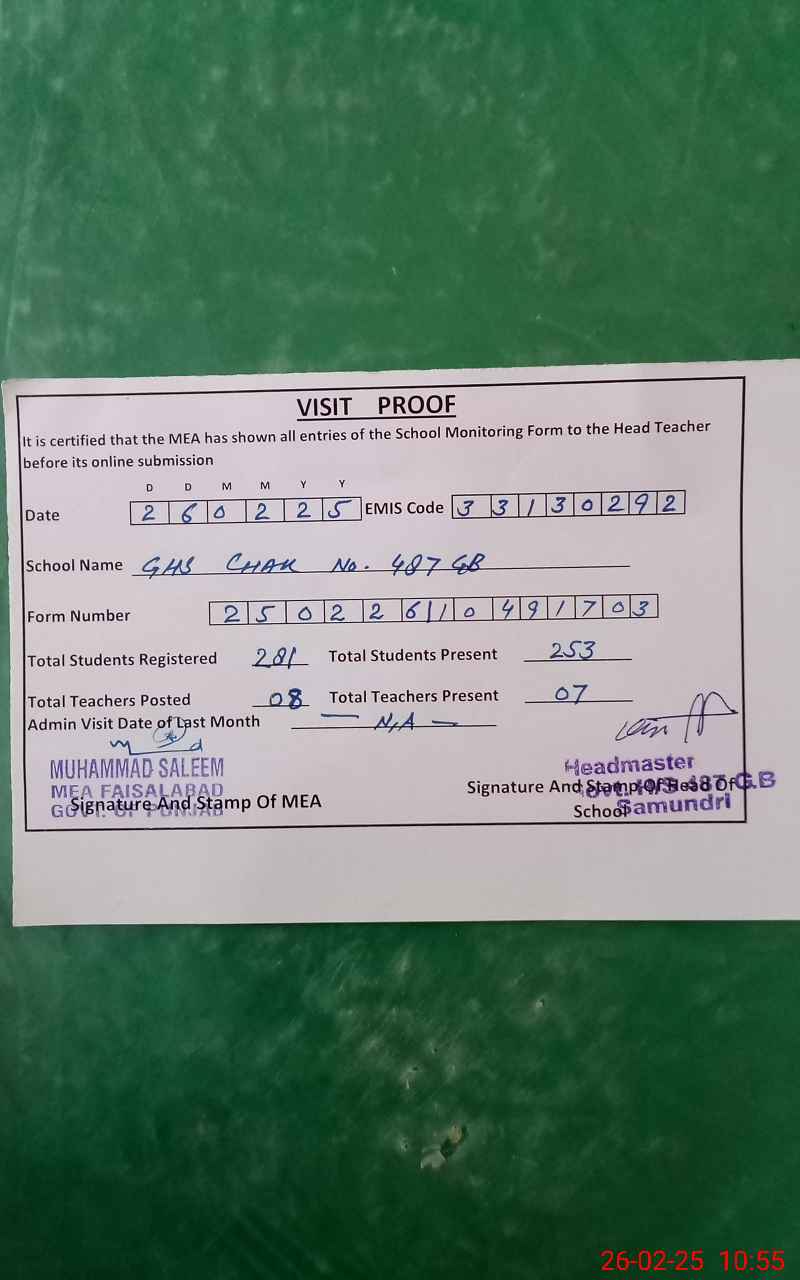 VISIT PROOF
It is certified that the MEA has shown all entries of the School Monitoring Form to the Head Teacher
before its online submission
D D M M Y Y
Date 2 6 0 2 2 5 EMIS Code 3 3 1 3 0 2 9 2
School Name GHS CHAK No. 487 GB
Form Number 2 5 0 2 2 6 1 0 4 9 1 7 0 3
Total Students Registered 281 Total Students Present 253
Total Teachers Posted 08 Total Teachers Present 07
Admin Visit Date of Last Month — N,A —
MUHAMMAD SALEEM
MEA FAISALABAD
GOVT. OF PUNJAB
Signature And Stamp Of MEA
Headmaster
487 G.B
Samundri
Signature And Stamp Of Head Of
School
26-02-25 10:55